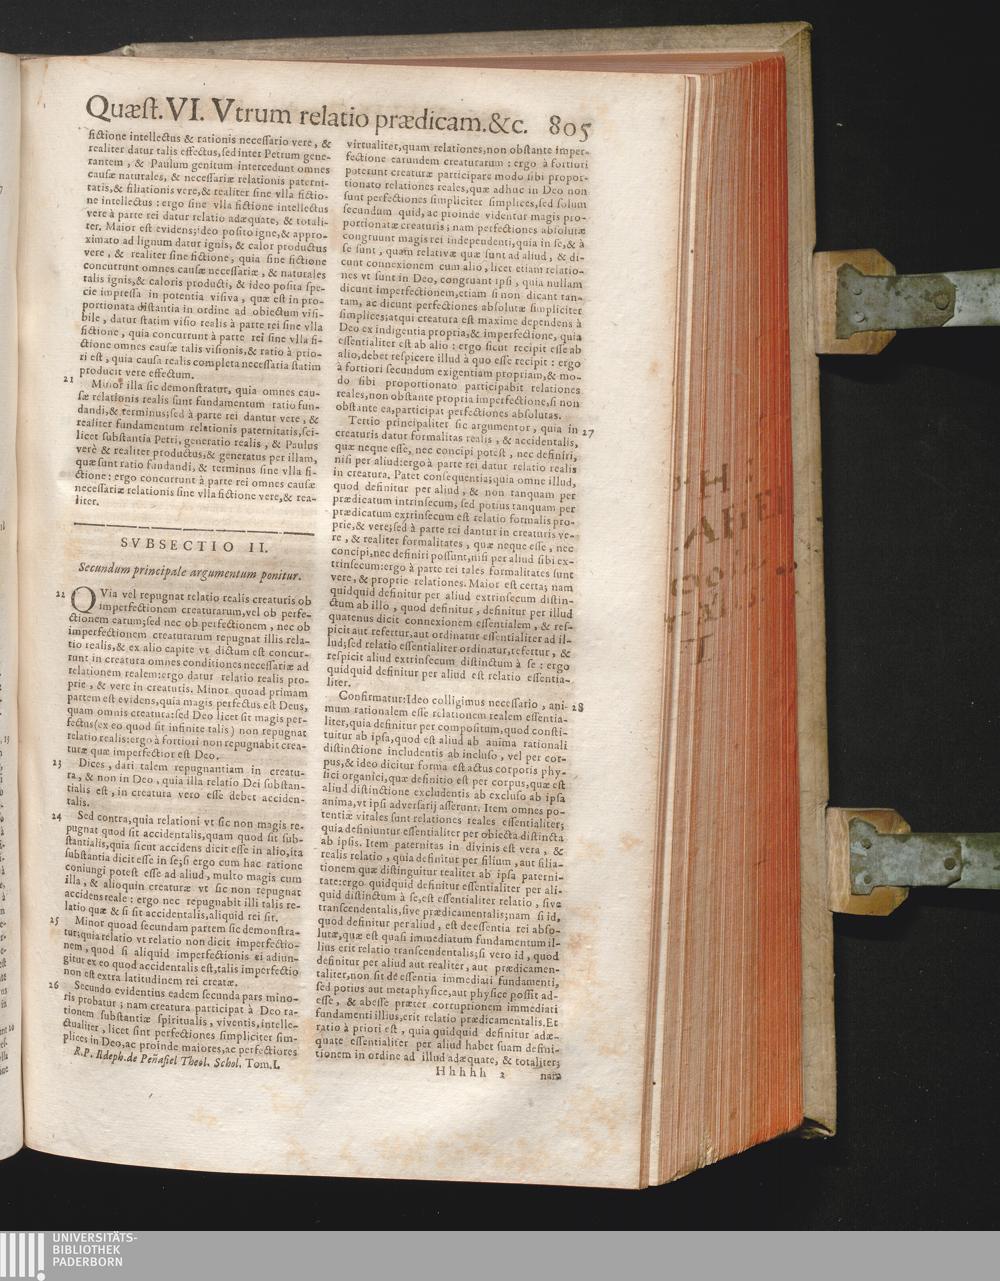 Quæſt. VI. Vtrum relatio prædicam. &c. 805
fictione intellectus & rationis neceſſario vere, &
realiter datur talis effectus, ſed inter Petrum gene-
rantem, & Paulum genitum intercedunt omnes
cauſæ naturales, & neceſſariæ relationis paterni-
tatis, & filiationis vere, & realiter ſine vlla fictio-
ne intellectus: ergo ſine vlla fictione intellectus
vere à parte rei datur relatio adæquate, & totali-
ter. Maior eſt evidens; ideo poſito igne, & appro-
ximato ad lignum datur ignis, & calor productus
vere, & realiter ſine fictione, quia ſine fictione
concurrunt omnes cauſæ neceſſariæ, & naturales
talis ignis, & caloris producti, & ideo poſita ſpe-
cie impreſſa in potentia viſiva, quæ eſt in pro-
portionata diſtantia in ordine ad obiectum viſi-
bile, datur ſtatim viſio realis à parte rei ſine vlla
fictione, quia concurrunt à parte rei ſine vlla fi-
ctione omnes cauſæ talis viſionis, & ratio à prio-
ri eſt, quia cauſa realis completa neceſſaria ſtatim
producit vere effectum.
21 Minor illa ſic demonſtratur, quia omnes cau-
ſæ relationis realis ſunt fundamentum ratio fun-
dandi, & terminus; ſed à parte rei dantur vere, &
realiter fundamentum relationis paternitatis, ſci-
licet ſubſtantia Petri, generatio realis, & Paulus
verè & realiter productus, & generatus per illam,
quæ ſunt ratio fundandi, & terminus ſine vlla fi-
ctione: ergo concurrunt à parte rei omnes cauſæ
neceſſariæ relationis ſine vlla fictione vere, & rea-
liter.
SVBSECTIO II.
Secundum principale argumentum ponitur.
22 QVia vel repugnat relatio realis creaturis ob
imperfectionem creaturarum, vel ob perfe-
ctionem earum; ſed nec ob perfectionem, nec ob
imperfectionem creaturarum repugnat illis rela-
tio realis, & ex alio capite vt dictum eſt concur-
runt in creatura omnes conditiones neceſſariæ ad
relationem realem: ergo datur relatio realis pro-
prie, & vere in creaturis. Minor quoad primam
partem eſt evidens, quia magis perfectus eſt Deus,
quam omnis creatura: ſed Deo licet ſit magis per-
fectus (ex eo quod ſit infinite talis) non repugnat
relatio realis: ergo à fortiori non repugnabit crea-
turæ quæ imperfectior eſt Deo.
23 Dices, dari talem repugnantiam in creatu-
ra, & non in Deo, quia illa relatio Dei ſubſtan-
tialis eſt, in creatura vero eſſe debet acciden-
talis.
24 Sed contra, quia relationi vt ſic non magis re-
pugnat quod ſit accidentalis, quam quod ſit ſub-
ſtantialis, quia ſicut accidens dicit eſſe in alio, ita
ſubſtantia dicit eſſe in ſe; ſi ergo cum hac ratione
coniungi poteſt eſſe ad aliud, multo magis cum
illa, & alioquin creaturæ vt ſic non repugnat
accidens reale: ergo nec repugnabit illi talis re-
latio quæ & ſi ſit accidentalis, aliquid rei ſit.
25 Minor quoad ſecundam partem ſic demonſtra-
tur; quia relatio vt relatio non dicit imperfectio-
nem, quod ſi aliquid imperfectionis ei adiun-
gitur ex eo quod accidentalis eſt, talis imperfectio
non eſt extra latitudinem rei creatæ.
26 Secundo evidentius eadem ſecunda pars mino-
ris probatur; nam creatura participat à Deo ra-
tionem ſubſtantiæ ſpiritualis, viventis, intelle-
ctualiter, licet ſint perfectiones ſimpliciter ſim-
plices in Deo, ac proinde maiores, ac perfectiores
R.P. Ildeph. de Peñafiel Theol. Schol. Tom. I.
virtualiter, quam relationes, non obſtante imper-
fectione earundem creaturarum: ergo à fortiori
poterunt creaturæ participare modo ſibi propor-
tionato relationes reales, quæ adhuc in Deo non
ſunt perfectiones ſimpliciter ſimplices, ſed ſolum
ſecundum quid, ac proinde videntur magis pro-
portionatæ creaturis; nam perfectiones abſolutæ
congruunt magis rei independenti, quia in ſe, & à
ſe ſunt, quam relativæ quæ ſunt ad aliud, & di-
cunt connexionem cum alio, licet etiam relatio-
nes vt ſunt in Deo, congruant ipſi, quia nullam
dicunt imperfectionem, etiam ſi non dicant tan-
tam, ac dicunt perfectiones abſolutæ ſimpliciter
ſimplices; atqui creatura eſt maxime dependens à
Deo ex indigentia propria, & imperfectione, quia
eſſentialiter eſt ab alio: ergo ſicut recipit eſſe ab
alio, debet reſpicere illud à quo eſſe recipit: ergo
à fortiori ſecundum exigentiam propriam, & mo-
do ſibi proportionato participabit relationes
reales, non obſtante propria imperfectione, ſi non
obſtante ea, participat perfectiones abſolutas.
Tertio principaliter ſic argumentor, quia in 27
creaturis datur formalitas realis, & accidentalis,
quæ neque eſſe, nec concipi poteſt, nec definiri,
niſi per aliud: ergo à parte rei datur relatio realis
in creatura. Patet conſequentia; quia omne illud,
quod definitur per aliud, & non tanquam per
prædicatum intrinſecum, ſed potius tanquam per
prædicatum extrinſecum eſt relatio formalis pro-
prie, & vere; ſed à parte rei dantur in creaturis ve-
re, & realiter formalitates, quæ neque eſſe, nec
concipi, nec definiri poſſunt, niſi per aliud ſibi ex-
trinſecum: ergo à parte rei tales formalitates ſunt
vere, & proprie relationes. Maior eſt certa; nam
quidquid definitur per aliud extrinſecum diſtin-
ctum ab illo, quod definitur, definitur per illud
quatenus dicit connexionem eſſentialem, & reſ-
picit aut refertur, aut ordinatur eſſentialiter ad il-
lud; ſed relatio eſſentialiter ordinatur, refertur, &
reſpicit aliud extrinſecum diſtinctum à ſe: ergo
quidquid definitur per aliud eſt relatio eſſentia-
liter.
Confirmatur: Ideo colligimus neceſſario, ani- 28
mum rationalem eſſe relationem realem eſſentia-
liter, quia definitur per compoſitum, quod conſti-
tuitur ab ipſa, quod eſt aliud ab anima rationali
diſtinctione includentis ab incluſo, vel per cor-
pus, & ideo dicitur forma eſt actus corporis phy-
ſici organici, quæ definitio eſt per corpus, quæ eſt
aliud diſtinctione excludentis ab excluſo ab ipſa
anima, vt ipſi adverſarij aſſerunt. Item omnes po-
tentiæ vitales ſunt relationes reales eſſentialiter;
quia definiuntur eſſentialiter per obiecta diſtincta
ab ipſis. Item paternitas in divinis eſt vera, &
realis relatio, quia definitur per filium, aut filia-
tionem quæ diſtinguitur realiter ab ipſa paterni-
tate: ergo quidquid definitur eſſentialiter per ali-
quid diſtinctum à ſe, eſt eſſentialiter relatio, ſive
tranſcendentalis, ſive prædicamentalis; nam ſi id,
quod definitur per aliud, eſt de eſſentia rei abſo-
lutæ, quæ eſt quaſi immediatum fundamentum il-
lius erit relatio tranſcendentalis; ſi vero id, quod
definitur per aliud aut realiter, aut prædicamen-
taliter, non ſit de eſſentia immediati fundamenti,
ſed potius aut metaphyſice, aut phyſice poſſit ad-
eſſe, & abeſſe præter corruptionem immediati
fundamenti illius, erit relatio prædicamentalis. Et
ratio à priori eſt, quia quidquid definitur adæ-
quate eſſentialiter per aliud habet ſuam defini-
tionem in ordine ad illud adæquate, & totaliter;
Hhhhh 2 nam
UNIVERSITÄTS-
BIBLIOTHEK
PADERBORN